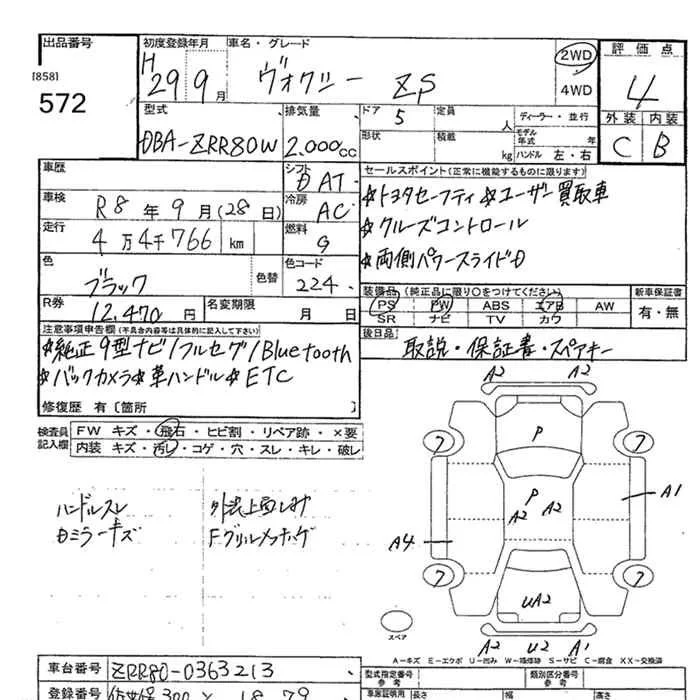 出品番号
[858]
572
初度登録年月 車名・グレード
H 29年 9月 ヴォクシー ZS
2WD
4WD
評価点
4
外装 内装
C B
型式 排気量 ドア 定員 ディーラー・並行
DBA-ZRR80W 2.000cc 5 人 モデル年式 年
形状 積載 kg ハンドル 左・右
車歴 シフト DAT
セールスポイント(正常に機能するものに限ります)
☆トヨタセーフティ ☆ユーザー買取車
☆クルーズコントロール
☆両側パワースライドD
車検 R8年9月(28日) 冷房 AC
走行 4万4千766 km 燃料 G
色 ブラック 色替 色コード 224
R券 12,470円 名変期限 月 日
装備品(純正品に限り○をつけてください) 新車保証書
PS PW ABS エアB AW 有・無
SR ナビ TV カワ
後日品 取説・保証書・スペアキー
注意事項申告欄(不具合内容等は具体的に記入して下さい)
☆純正9型ナビ/フルセグ/Bluetooth
☆バックカメラ☆革ハンドル☆ETC
修復歴 有〔箇所 〕
検査員記入欄
FW キズ・飛石・ヒビ割・リペア跡・×要
内装 キズ・汚レ・コゲ・穴・スレ・キレ・破レ
ハンドルスレ 外装上面しみ
Dミラーキズ Fグリルメッキハゲ
A2 A2
フ P フ
P
A2 A2
A1
A4
フ UA2 フ
A2 U2 A1
スペア
A-キズ E-エクボ U-凹み W-補修跡 S-サビ C-腐食 XX-交換済
車台番号 ZRR80-0363213
型式指定番号 参考 類別区分番号 参考
登録番号
車庫証明用 長さ 幅 高さ